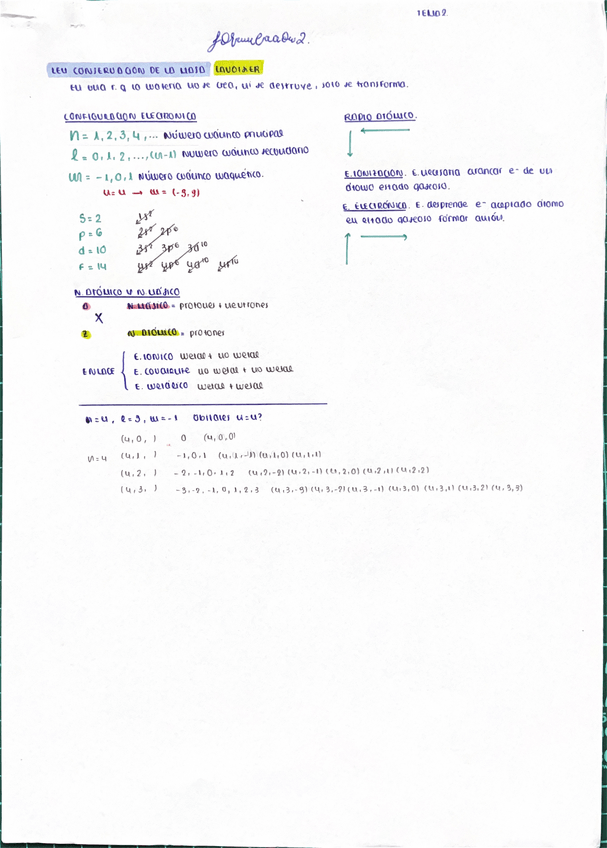 TEMA 2.
Formulación 2.
LEY CONSERVACIÓN DE LA MASA LAVOISIER
En una r.q la materia no se crea, ni se destruye, solo se transforma.
CONFIGURACIÓN ELECTRÓNICA
n = 1, 2, 3, 4, ... Número cuántico principal
l = 0, 1, 2, ..., (n-1) Número cuántico secundario
m = -1, 0, 1 Número cuántico magnético.
n=4 → m = (-3, 3)
S = 2 1s²
p = 6 2s² 2p⁶
d = 10 3s² 3p⁶ 3d¹⁰
F = 14 4s² 4p⁶ 4d¹⁰
RADIO ATÓMICO.
E. IONIZACIÓN. E. necesaria arrancar e- de un
átomo estado gaseoso.
E. ELECTRÓNICA. E. desprende e- aceptado átomo
en estado gaseoso formar anión.
N. ATÓMICO Y N. MÁSICO
A N. MÁSICO = protones + neutrones
X
Z N. ATÓMICO = protones
ENLACE
E. IONICO metal + no metal
E. COVALENTE no metal + no metal
E. METÁLICO metal + metal
n=4, l=3, m=-1 Orbitales n=4?
(4,0, ) 0 (4,0,0)
n=4 (4,1, ) -1,0,1 (4,1,-1) (4,1,0) (4,1,1)
(4,2, ) -2,-1,0,1,2 (4,2,-2) (4,2,-1) (4,2,0) (4,2,1) (4,2,2)
(4,3, ) -3,-2,-1,0,1,2,3 (4,3,-3) (4,3,-2) (4,3,-1) (4,3,0) (4,3,1) (4,3,2) (4,3,3)